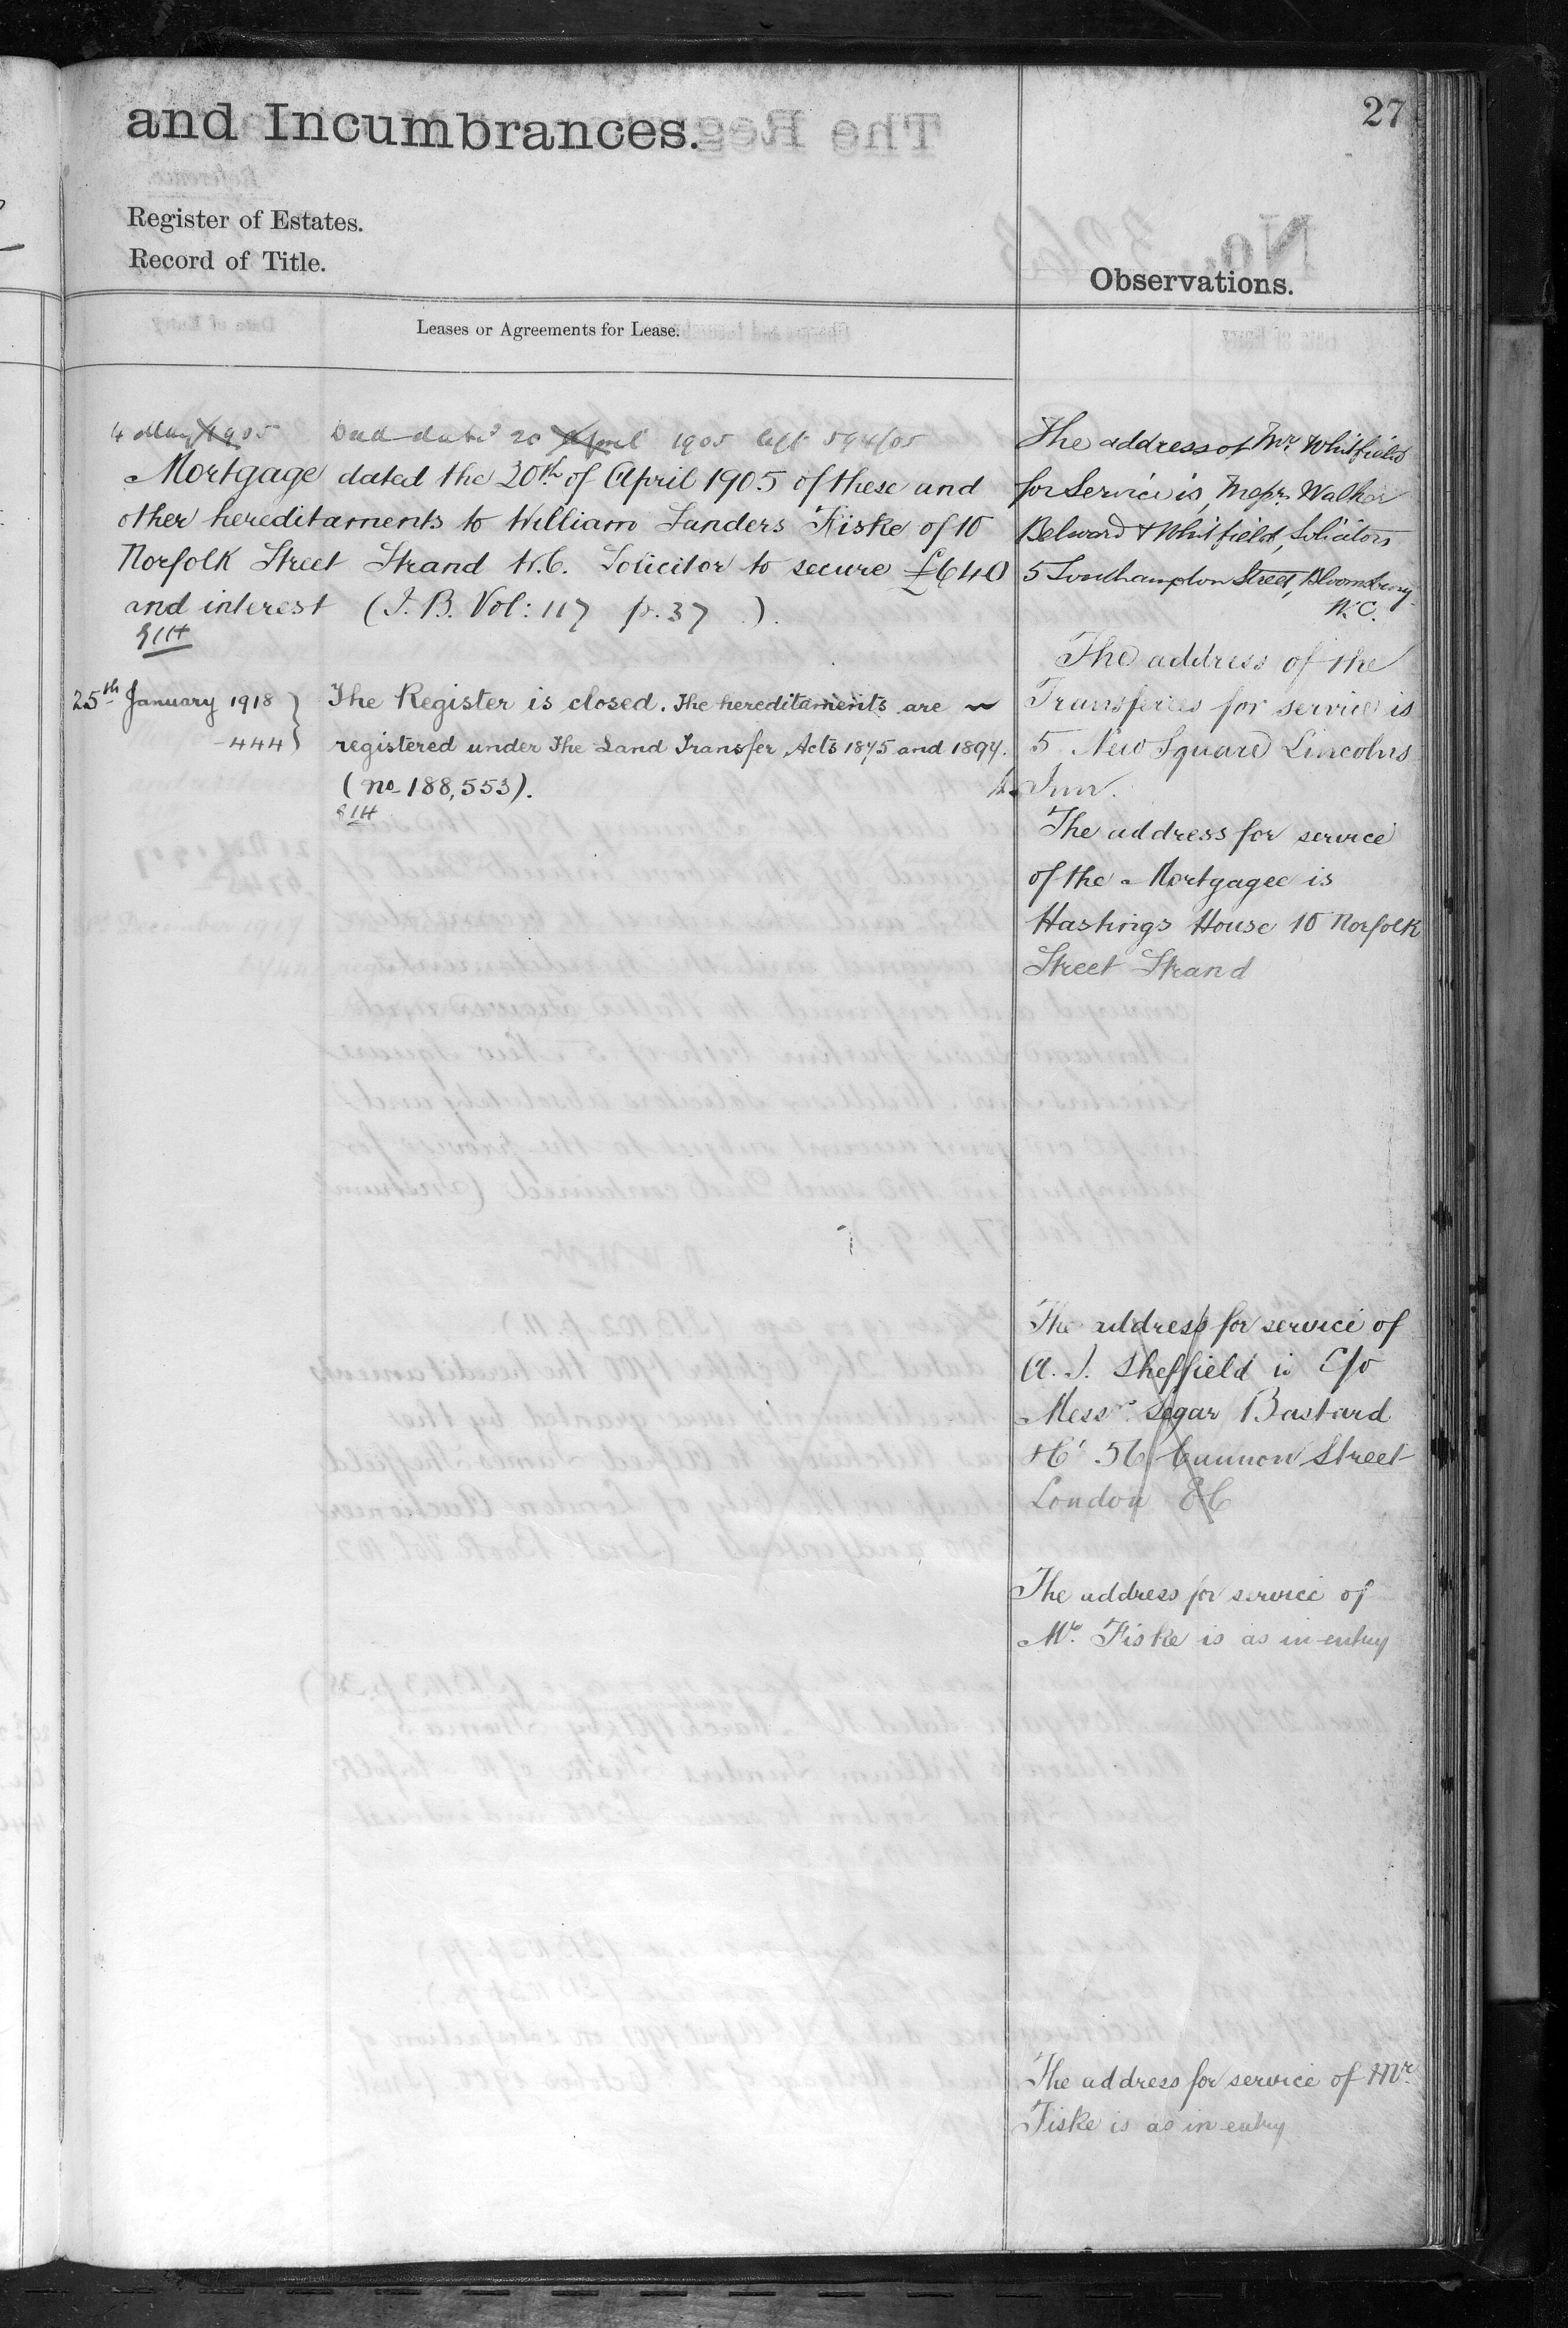 27
and Incumbrances.
Register of Estates.
Record of Title.
Observations.
Leases or Agreements for Lease.
4 May 1905 Deed dated 20 April 1905 left 594/05
Mortgage dated the 20th of April 1905 of these and
other hereditaments to William Sanders Fiske of 10
Norfolk Street Strand W.C. Solicitor to secure £640
and interest (I.B. Vol: 117 p. 37 ).
25th January 1918 } The Register is closed. The hereditaments are
444 } registered under The Land Transfer Acts 1875 and 1897.
(No 188,553).
The address of Mr. Whitfield
for Service is, Messrs. Walker
Belward & Whitfield, Solicitors
5 Southampton Street, Bloomsbury
W.C.
The address of the
Transferees for service is
5 New Square Lincolns
Inn.
The address for service
of the Mortgagee is
Hastings House 10 Norfolk
Street Strand
The address for service of
A. J. Sheffield is C/o
Messrs. Segar Bastard
&C 56 Cannon Street
London EC
The address for service of
Mr. Fiske is as in entry
The address for service of Mr.
Fiske is as in entry